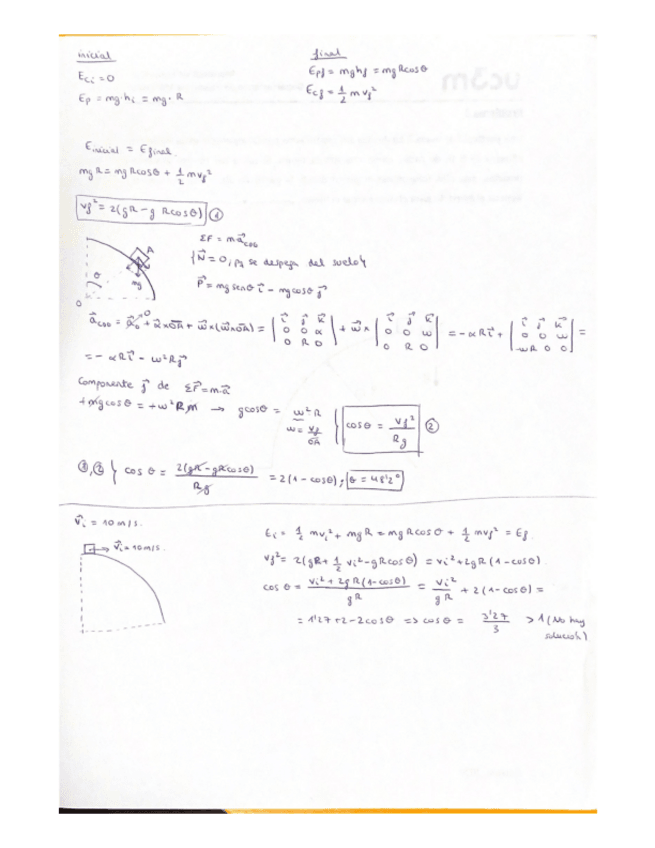 inicial
final
E_ci = 0
E_pf = mghf = mgRcosθ
E_p = mg·hi = mg·R
E_cf = 1/2 m vf²
E inicial = E final.
mgR = mgRcosθ + 1/2 mvf²
vf² = 2(gR - g Rcosθ) ①
A
θ
mg
O
ΣF = m a⃗
{N⃗ = 0, pq se despega del suelo}
P⃗ = mg senθ i⃗ - mg cosθ j⃗
= | i⃗ j⃗ k⃗ ; 0 0 α ; 0 R 0 | + ω⃗ × | i⃗ j⃗ k⃗ ; 0 0 ω ; 0 R 0 | = -αR i⃗ + | i⃗ j⃗ k⃗ ; 0 0 ω ; -ωR 0 0 | =
= - αR i⃗ - ω²R j⃗
Componente j⃗ de ΣF⃗ = m·a⃗
+mg cosθ = +ω²Rm → g cosθ = ω²R
ω = vf/OA
cosθ = vf²/Rg ②
①,② } cosθ = 2(gR - gRcosθ)/Rg = 2(1 - cosθ); θ = 48'2°
v⃗i = 10 m/s.
v⃗i = 10 m/s.
Ei = 1/2 mvi² + mgR = mgRcosθ + 1/2 mvf² = Ef
vf² = 2(gR + 1/2 vi² - gRcosθ) = vi² + 2gR(1 - cosθ)
cosθ = vi² + 2gR(1 - cosθ)/gR = vi²/gR + 2(1 - cosθ) =
= 1'27 + 2 - 2cosθ => cosθ = 3'27/3 > 1 (No hay
solución)